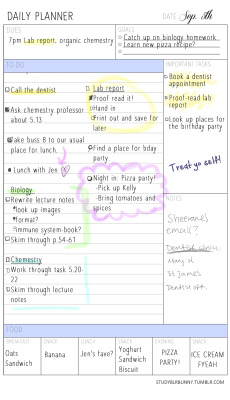 DAILY PLANNER
DATE Sep. 8th
DUES
7pm Lab report, organic chemistry
GOALS
Catch up on biology homework
Learn new pizza recipe?
TO DO
Call the dentist
Ask chemistry professor
about 5.13
Take buss B to our usual
place for lunch.
Lunch with Jen
Biology
Rewrite lecture notes
look up images
format?
immune system-book?
Skim through p.54-61
Chemistry
Work through task 5.20-
22
Skim through lecture
notes
Lab report
Proof read it!
Hand in
Print out and save for
later
Find a place for bday
party
Night in: Pizza party!
-Pick up Kelly
-Bring tomatoes and
spices
IMPORTANT TASKS
Book a dentist
appointment
Proof-read lab
report
Look up places for
the birthday party
Treat yo self!
NOTES
Sheeran's
email?
May 14
St James
Dentist off.
FOOD
BREAKFAST
Oats
Sandwich
SNACK
Banana
LUNCH
Jen's fave?
SNACK
Yoghurt
Sandwich
Biscuit
EVENING
PIZZA
PARTY!
SNACK
ICE CREAM
FYEAH
STUDYBLRBUNNY.TUMBLR.COM